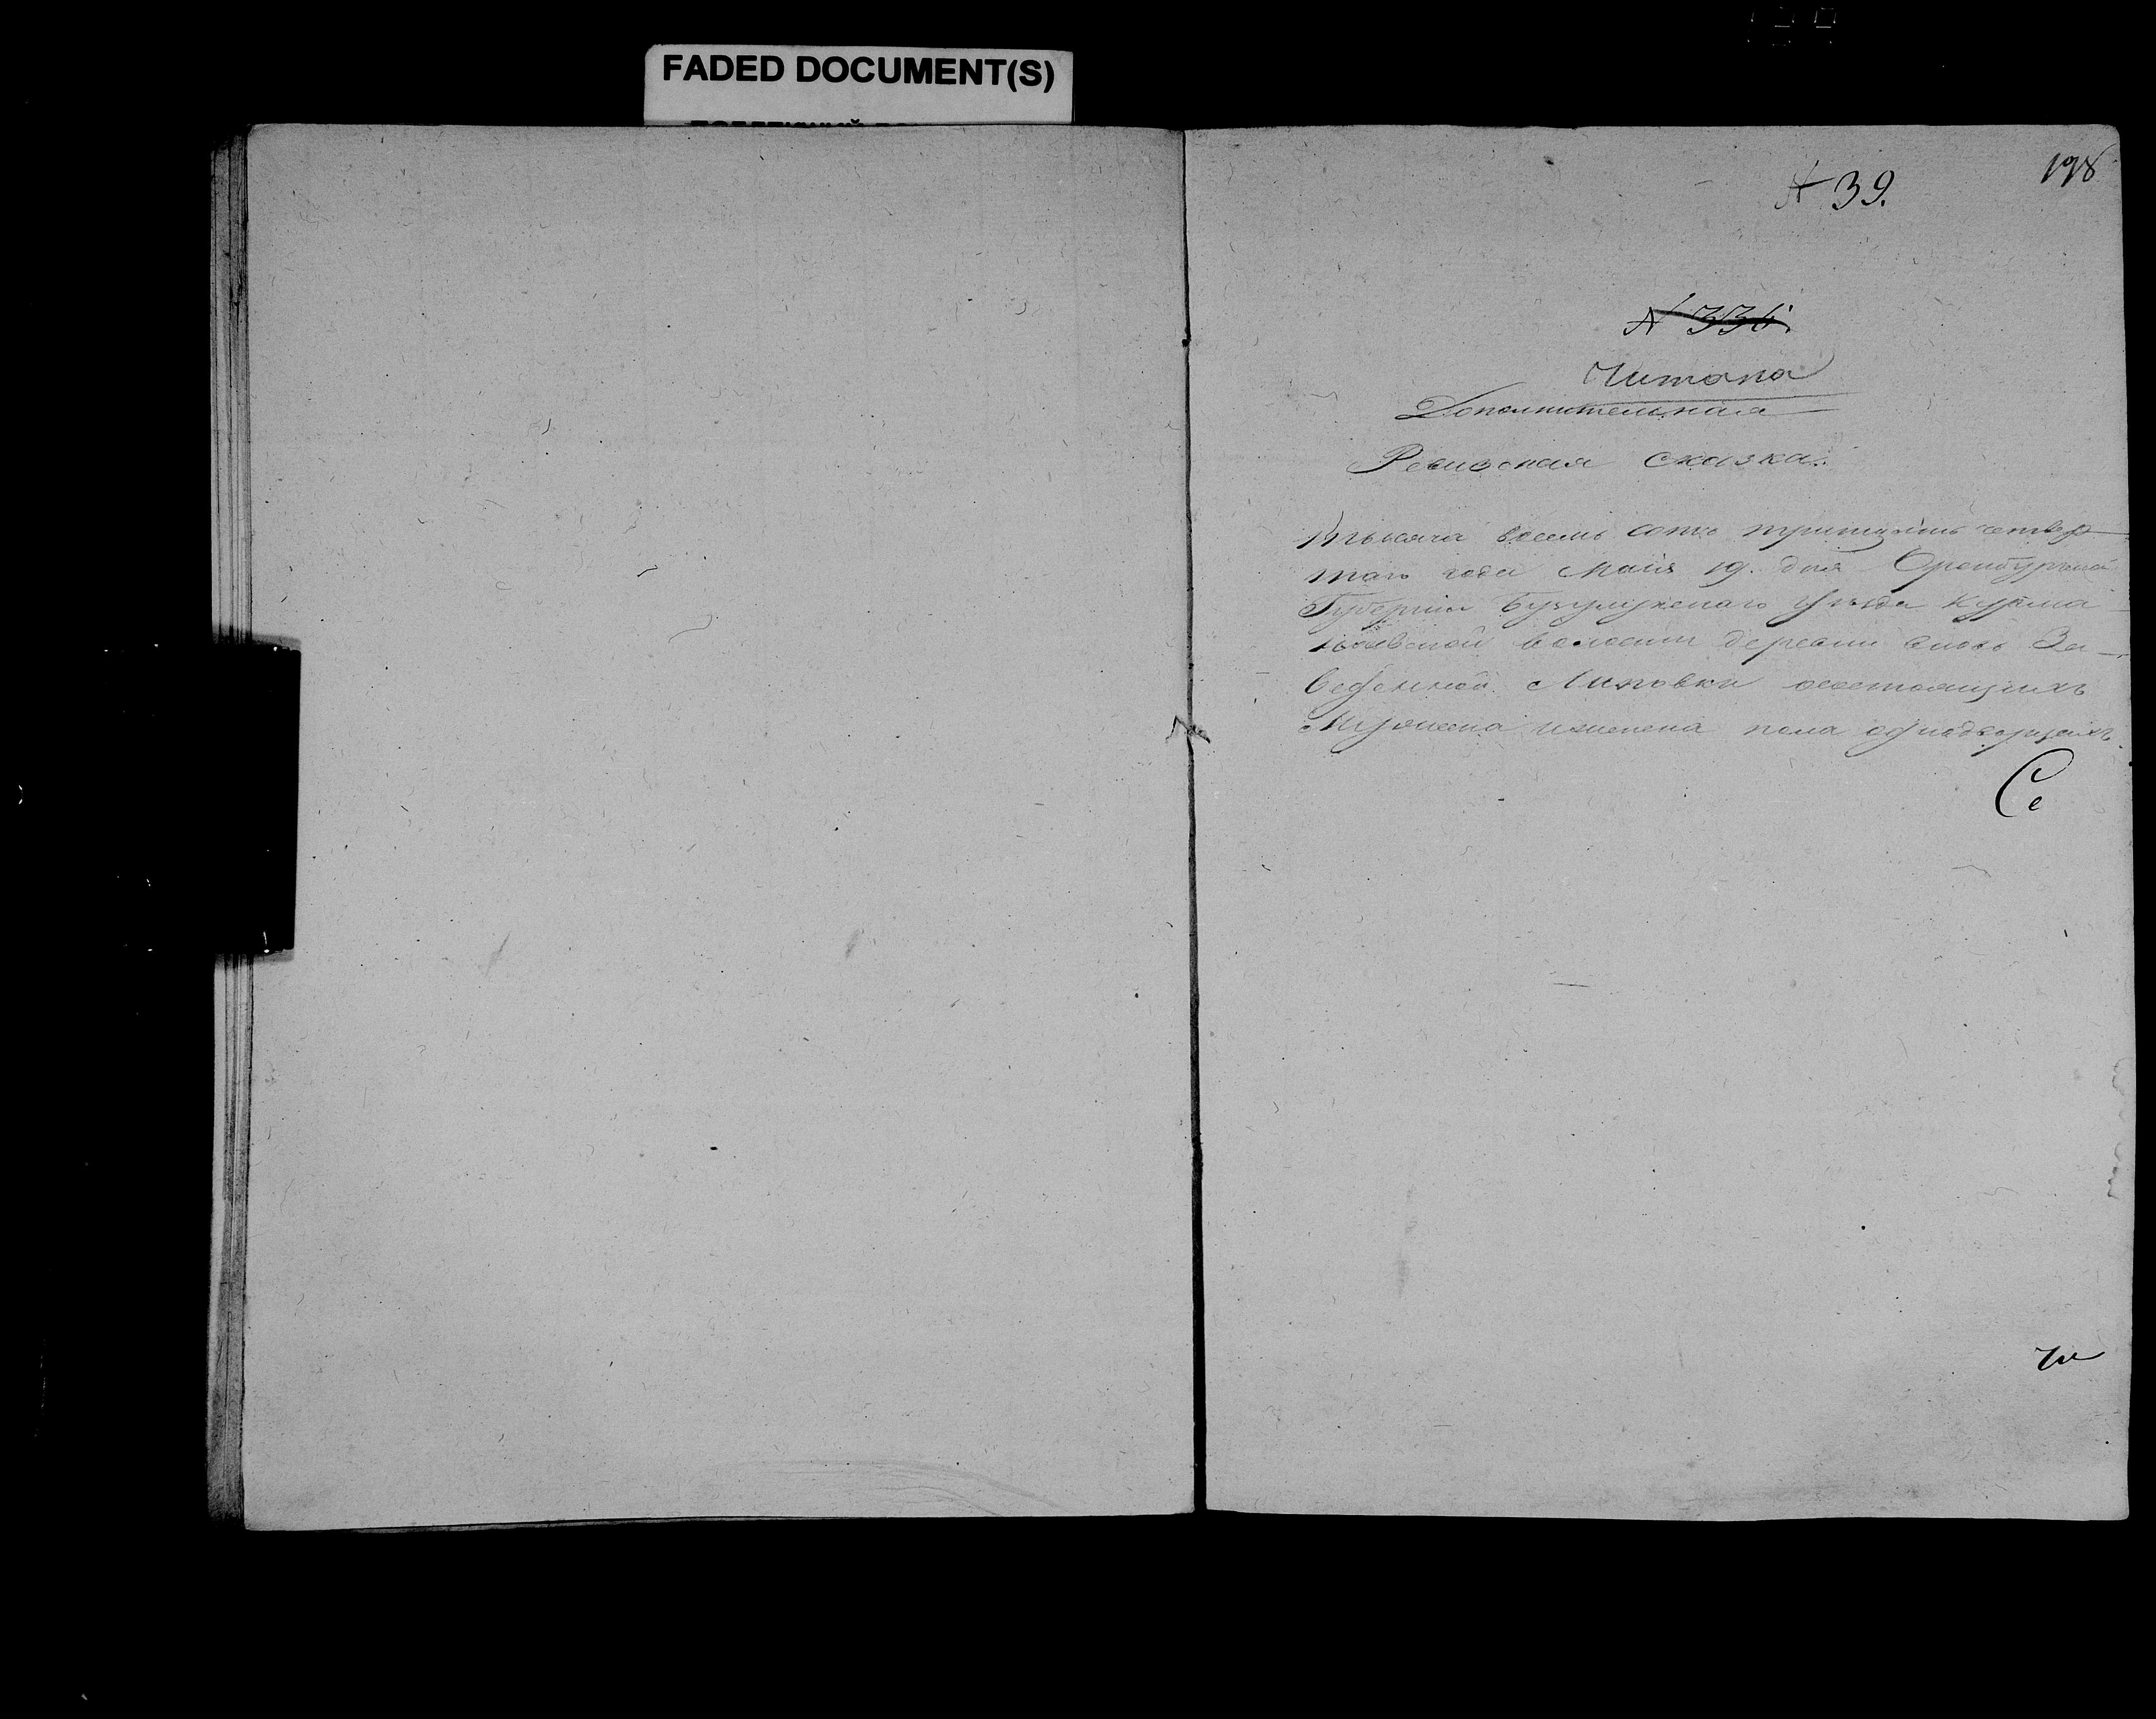 FADED DOCUMENT(S)
198
№ 39.
№ 336.
Читана
Дополнительная
Ревизская сказка.
1834 тысяча восемь сотъ тритцать четвер
таго года Маія 19. дня Оренбургской
Губерніи Бузулукскаго уѣзда Курма
наевской волости деревни вновь За
веденной Липовки осостоящихъ
Мужеска иженска пола однодворцахъ.
Се
Чи